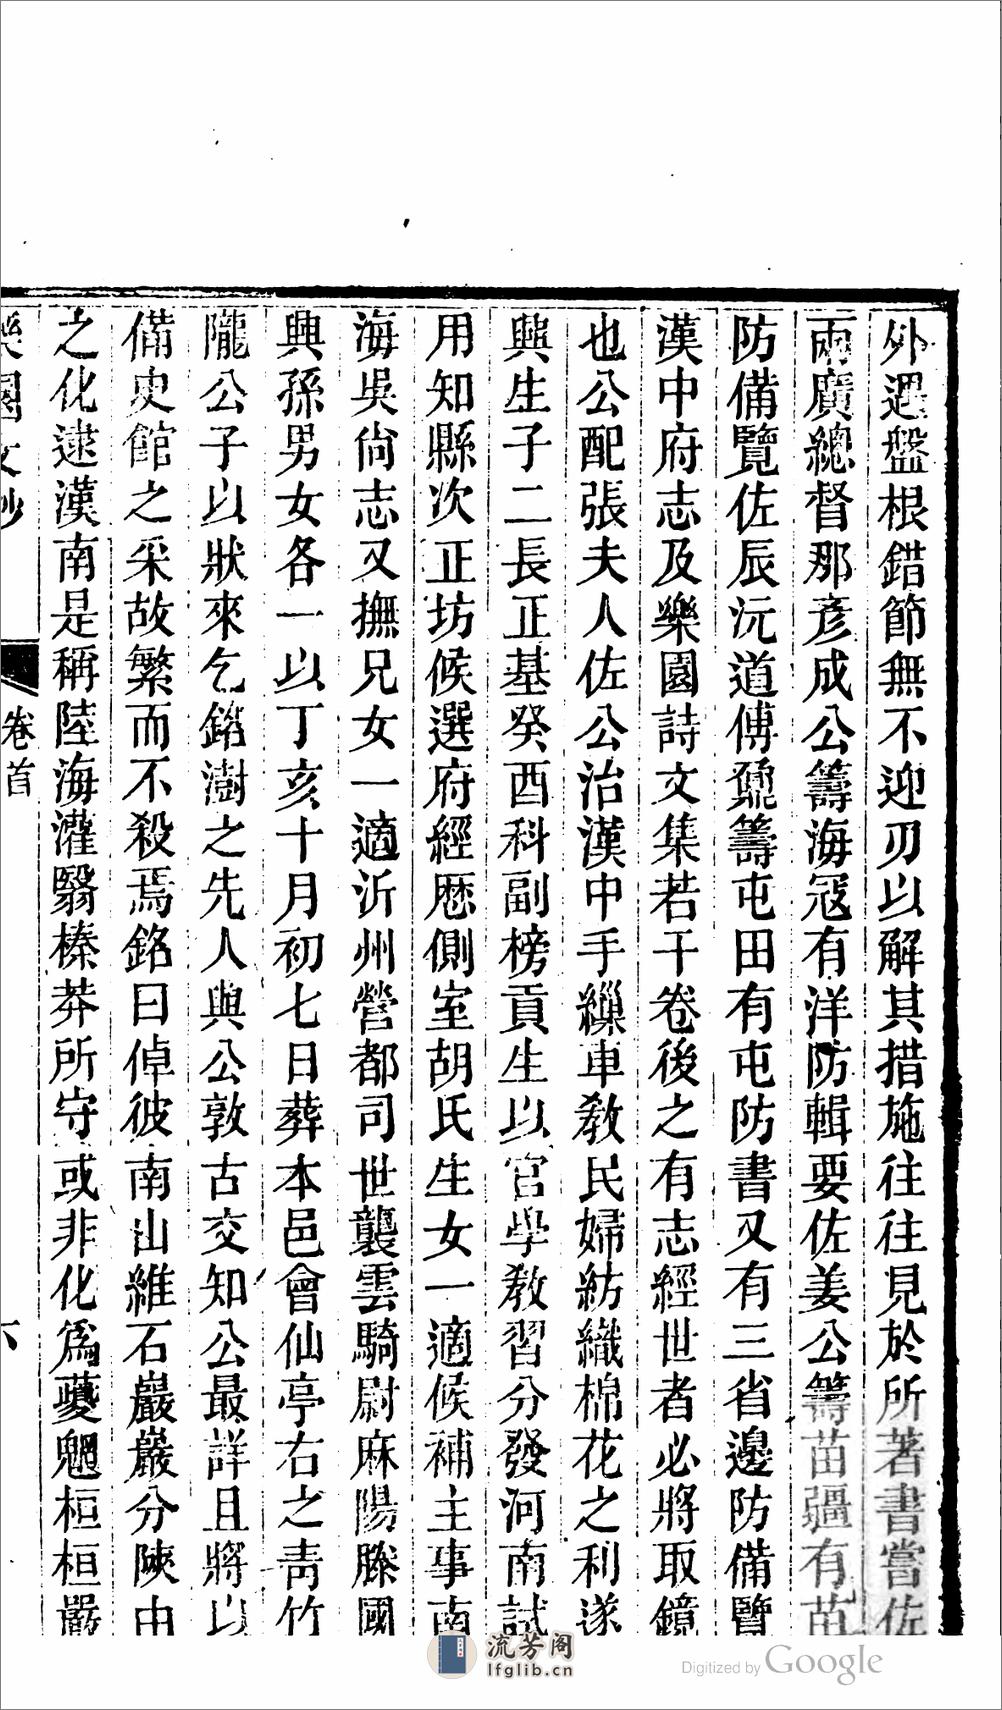 外遇盤根錯節無不迎刃以解其措施往往見於所著書嘗佐
兩廣總督那彥成公籌海冦有洋防輯要佐姜公籌苗疆有苗
防備覽佐辰沅道傅鼐籌屯田有屯防書又有三省邊防備覽
漢中府志及樂園詩文集若干卷後之有志經世者必將取鏡
也公配張夫人佐公治漢中手繅車敎民婦紡織棉花之利遂
興生子二長正基癸酉科副榜貢生以官學教習分發河南試
用知縣次正坊候選府經歷側室胡氏生女一適候補主事南
海吳尙志又撫兄女一適沂州營都司世襲雲騎尉麻陽滕國
興孫男女各一以丁亥十月初七日葬本邑會仙亭右之靑竹
隴公子以狀來乞銘澍之先人與公敦古交知公最詳且將以
備史館之采故繁而不殺焉銘曰倬彼南山維石巖巖分陝由
之化逮漢南是稱陸海灌翳榛莽所守或非化爲夔魍桓桓嚴
樂園文鈔
卷首
六
流芳阁
lfglib.cn
Digitized by Google